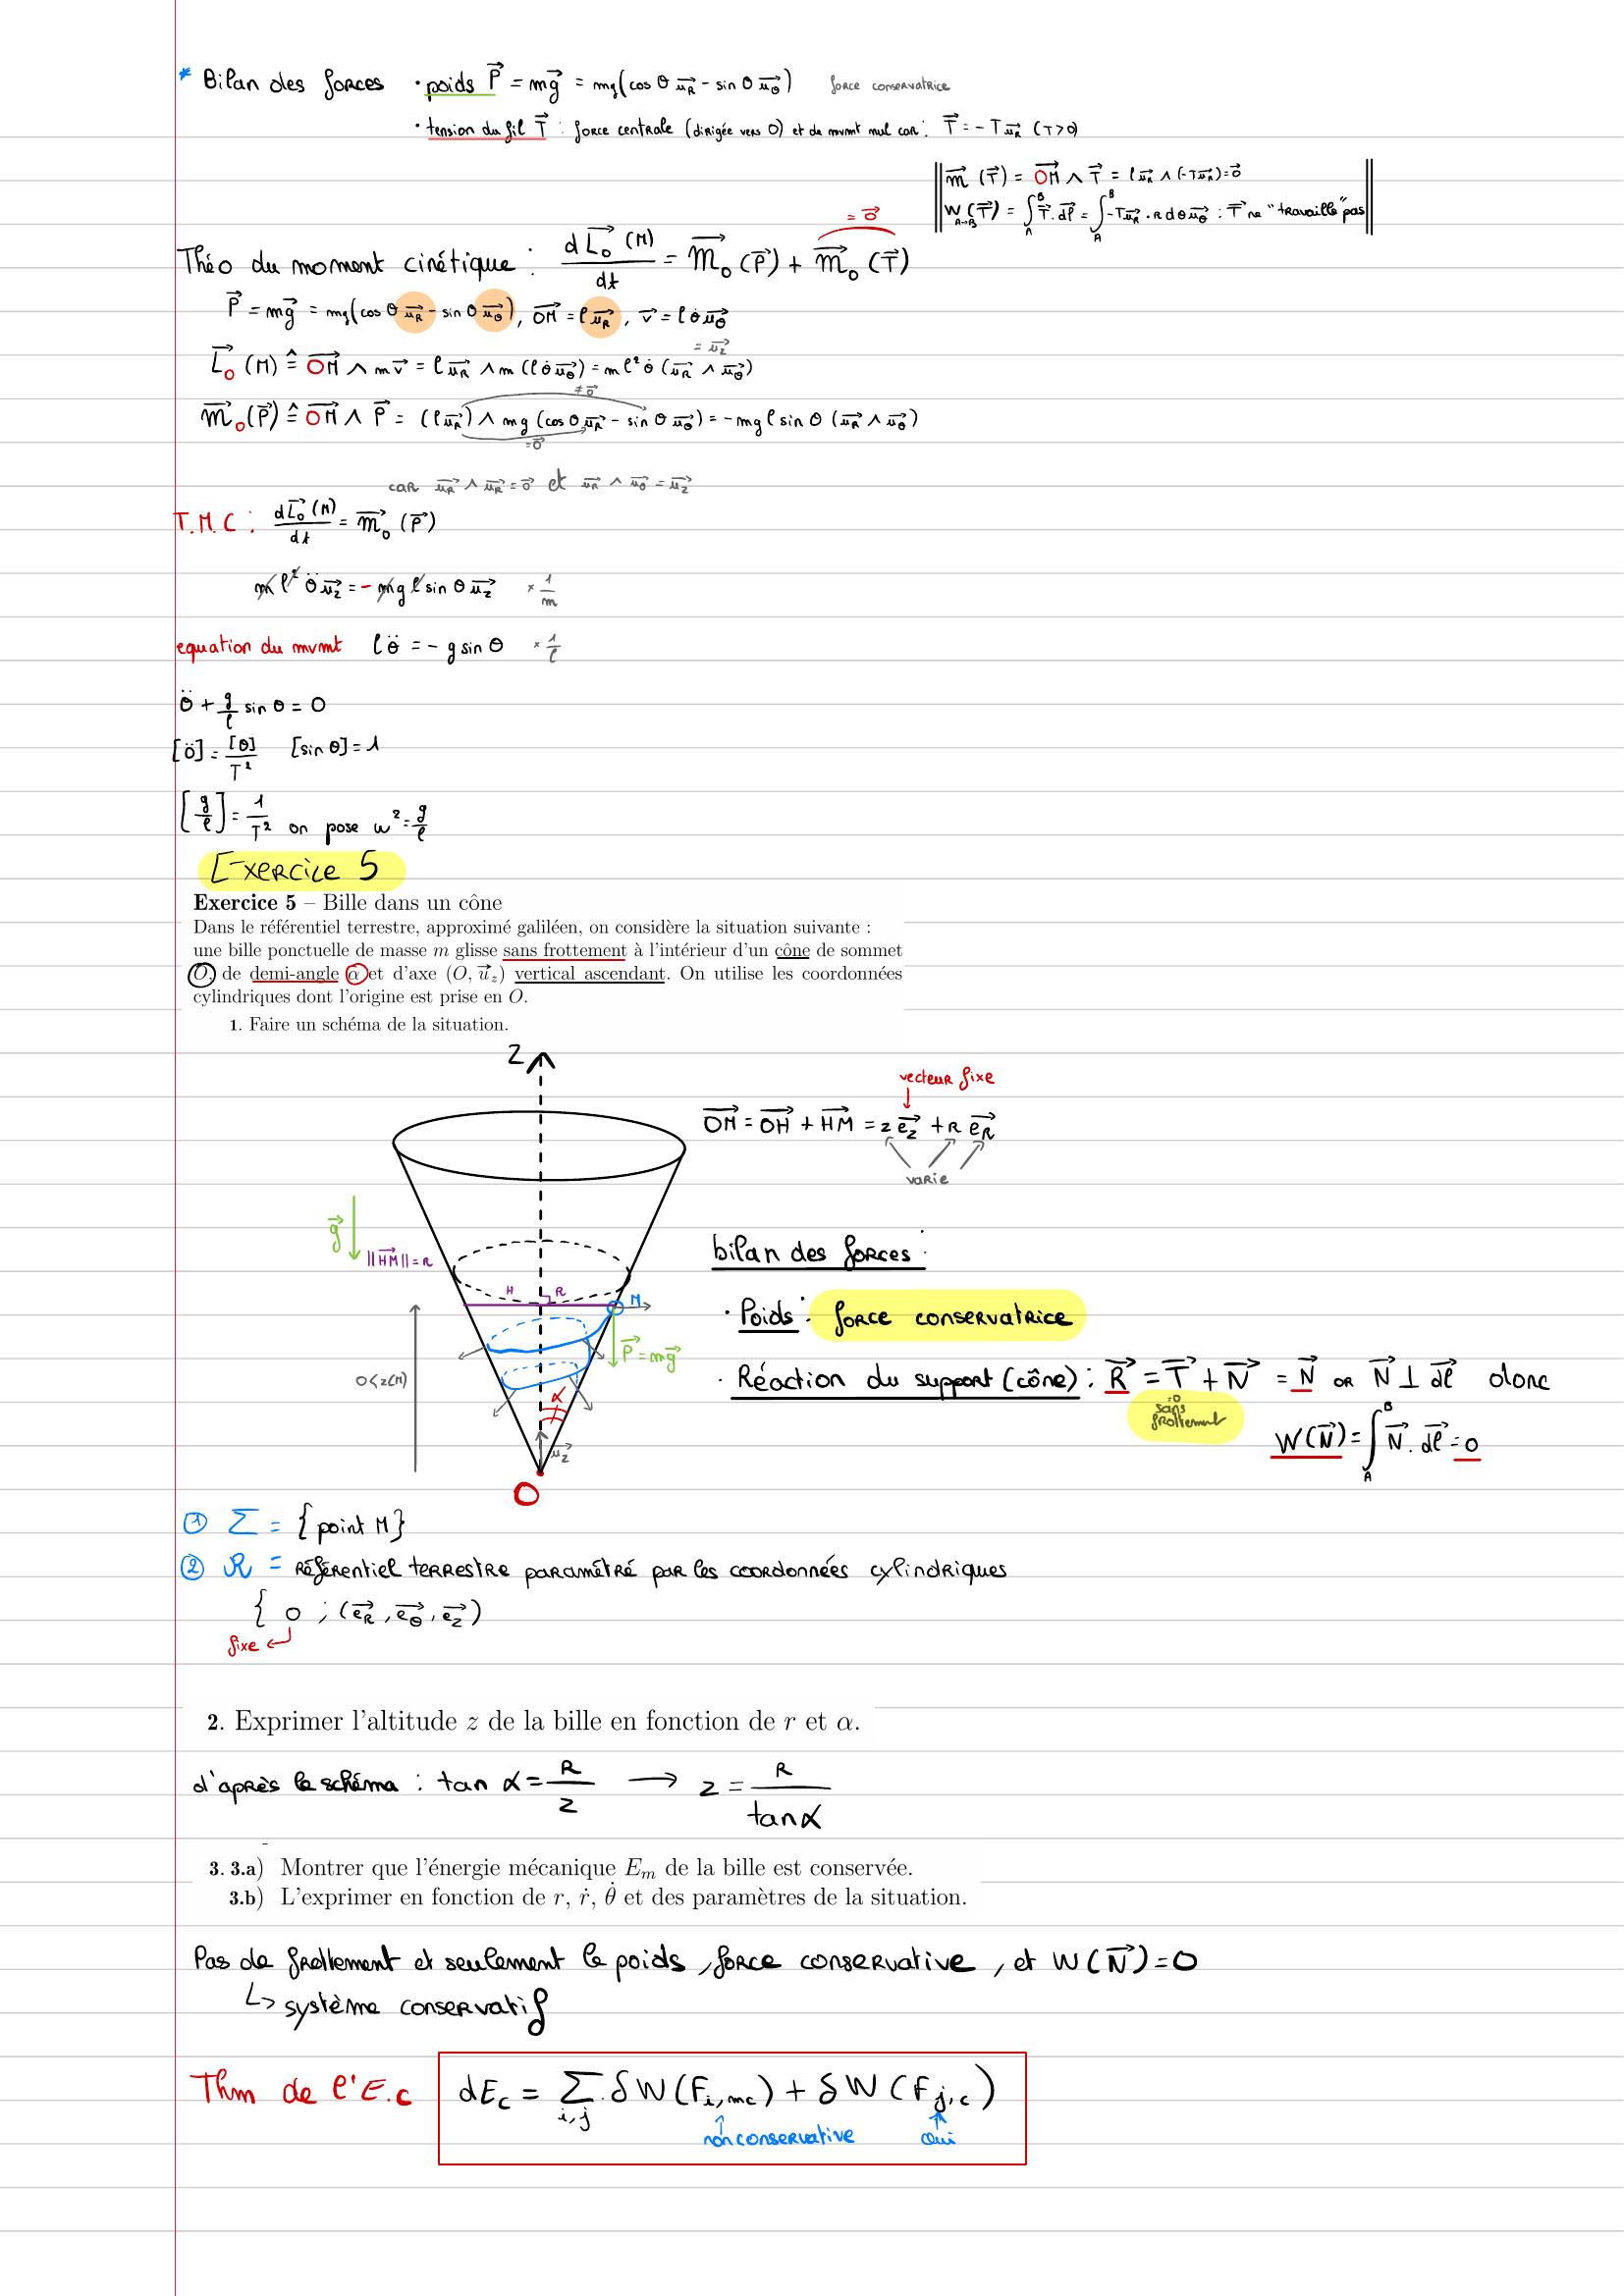 * Bilan des forces • poids P⃗ = mg⃗ = mg(cos θ u⃗R - sin θ u⃗θ) force conservatrice
• tension du fil T⃗ : force centrale (dirigée vers O) et de mvmt nul car : T⃗ = - T u⃗R (T>0)
m⃗ (T⃗) = OM⃗ ∧ T⃗ = l u⃗R ∧ (-T u⃗R) = 0⃗
W A→B (T⃗) = ∫_A^B T⃗. dl⃗ = ∫_A^B -T u⃗R • R dθ u⃗θ : T⃗ ne "travaille" pas
= 0⃗
Théo du moment cinétique : dL⃗o (M)/dt = m⃗o (P⃗) + m⃗o (T⃗)
P⃗ = mg⃗ = mg(cos θ u⃗R - sin θ u⃗θ), OM⃗ = l u⃗R, v⃗ = l θ̇ u⃗θ
= u⃗z
L⃗o (M) ≙ OM⃗ ∧ mv⃗ = l u⃗R ∧ m (l θ̇ u⃗θ) = m l² θ̇ (u⃗R ∧ u⃗θ)
≠ 0⃗
m⃗o(P⃗) ≙ OM⃗ ∧ P⃗ = (l u⃗R) ∧ mg (cos θ u⃗R - sin θ u⃗θ) = - mg l sin θ (u⃗R ∧ u⃗θ)
= 0⃗
car u⃗R ∧ u⃗R = 0⃗ et u⃗R ∧ u⃗θ = u⃗z
T.M.C : dL⃗o (M)/dt = m⃗o (P⃗)
m l² θ̈ u⃗z = - m g l sin θ u⃗z × 1/m
equation du mvmt l θ̈ = - g sin θ × 1/l
θ̈ + g/l sin θ = 0
[θ̈] = [θ]/T² [sin θ] = 1
[g/l] = 1/T² on pose w² = g/l
Exercice 5
Exercice 5 – Bille dans un cône
Dans le référentiel terrestre, approximé galiléen, on considère la situation suivante :
une bille ponctuelle de masse m glisse sans frottement à l'intérieur d'un cône de sommet
O, de demi-angle α et d'axe (O, u⃗z) vertical ascendant. On utilise les coordonnées
cylindriques dont l'origine est prise en O.
1. Faire un schéma de la situation.
z
vecteur fixe
OM⃗ = OH⃗ + HM⃗ = z e⃗z + R e⃗R
varie
g⃗
||HM⃗|| = R
H R M
P⃗ = mg⃗
0 < z(M)
α
u⃗z
O
bilan des forces :
• Poids : force conservatrice
• Réaction du support (cône) : R⃗ = T⃗ + N⃗ = N⃗ or N⃗ ⊥ dl⃗ donc
=0 sans frottement
W(N⃗) = ∫_A^B N⃗. dl⃗ = 0
① Σ = {point M}
② R = référentiel terrestre paramétré par les coordonnées cylindriques
{ O ; (e⃗R, e⃗θ, e⃗z)
fixe
2. Exprimer l'altitude z de la bille en fonction de r et α.
d'après le schéma : tan α = R/z → z = R/tan α
3. 3.a) Montrer que l'énergie mécanique Em de la bille est conservée.
3.b) L'exprimer en fonction de r, ṙ, θ̇ et des paramètres de la situation.
Pas de frottement et seulement le poids, force conservative, et W(N⃗) = 0
↳ système conservatif
Thm de l'E.c dEc = Σ i,j δW(Fi,mc) + δW(Fj,c)
non conservative oui